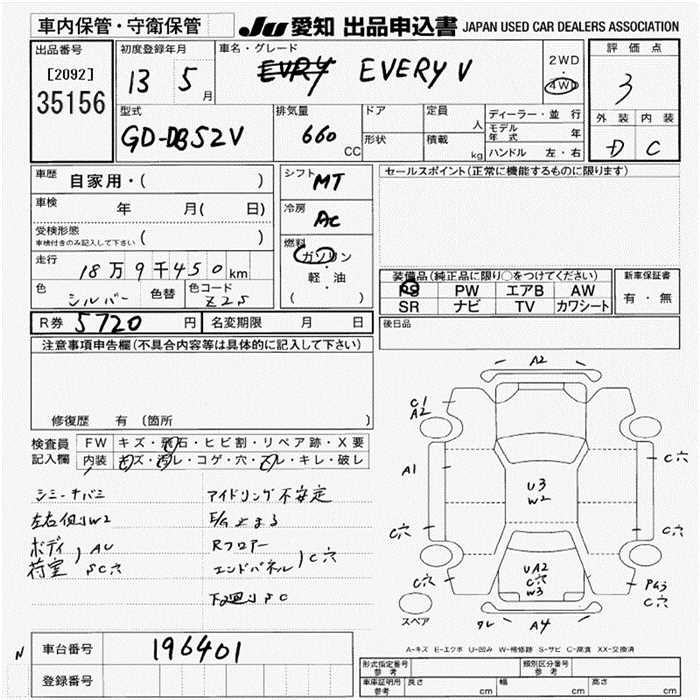 車内保管・守衛保管 JU 愛知 出品申込書 JAPAN USED CAR DEALERS ASSOCIATION
出品番号 初度登録年月 車名・グレード 2WD 評価点
[2092] 13 5月 EVERY V ・ 3
35156 4WD
外装 内装
D C
型式 排気量 ドア 定員 ディーラー・並行
GD-DB52V 660 CC 人 モデル年式 年
形状 積載 kg ハンドル 左・右
車歴 自家用・( ) シフト MT セールスポイント(正常に機能するものに限ります)
車検 年 月( 日) 冷房 AC
受検形態 ( )
車検付きのみ記入して下さい
燃料 ガソリン
走行 18万9千450km ・
軽・油
( )
色 シルバー 色替 色コード Z2S
装備品(純正品に限り○をつけてください) 新車保証書
PS PW エアB AW 有・無
SR ナビ TV カワシート
R券 5720円 名変期限 月 日 後日品
注意事項申告欄(不具合内容等は具体的に記入して下さい)
修復歴 有 〔箇所 〕
検査員 FW キズ・飛石・ヒビ割・リペア跡・X要
記入欄 内装 キズ・汚レ・コゲ・穴・スレ・キレ・破レ
アイドリング不安定
左右側W2 E/G止まる
ボディ AU Rフロアー
荷室 SC穴 エンドパネル C穴
下廻りSC
A2
C1
A2
A1
C穴
C穴
U3
W2
C穴
C穴
C穴
UA2
C穴
W3
C穴
スペア
A4
A-キズ E-エクボ U-凹み W-補修跡 S-サビ C-腐食 XX-交換済
N 車台番号 196401
登録番号
形式指定番号 参考 類別区分番号 参考
車庫証明用 参考 長さ cm 幅 cm 高さ cm